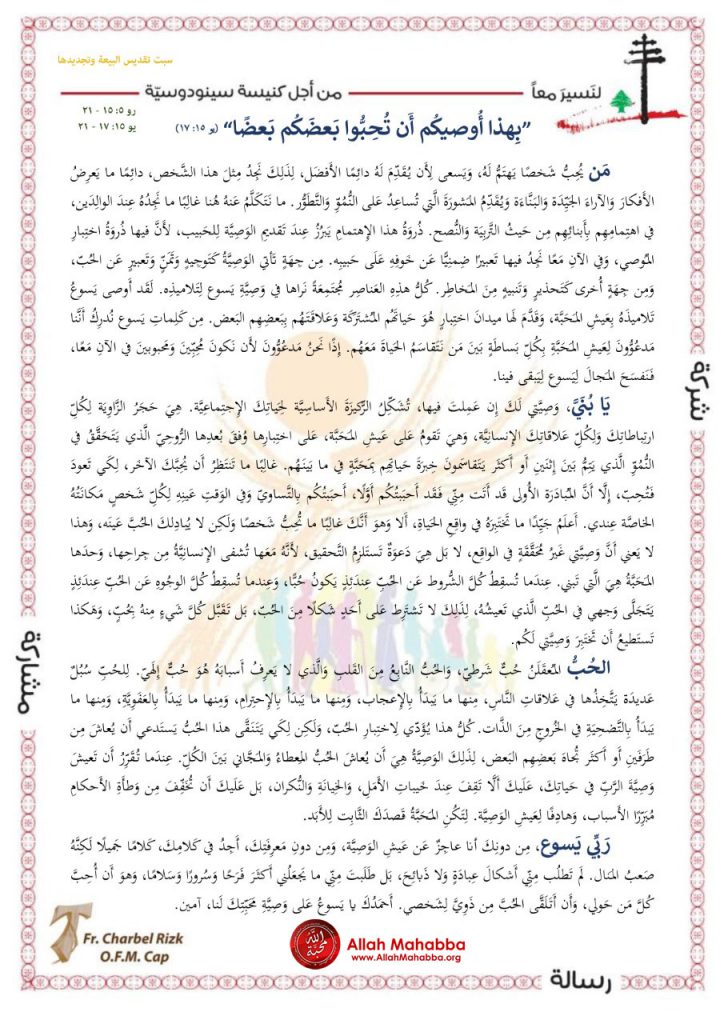 سبت تقديس البيعة وتجديدها
لنَسيرَ معاً
من أجل كنيسة سينودوسيّة
رو ٥: ١٥ - ٢١
يو ١٥: ١٧ - ٢١
”بِهذا أُوصيكُم أَن تُحِبُّوا بَعضَكُم بَعضًا“ (يو ١٥: ١٧)
مَن يُحِبُّ شَخصًا يَهتَمُّ لَهُ، وَيَسعى لِأَن يُقَدِّمَ لَهُ دائِمًا الأَفضَل، لِذَلِكَ نَجِدُ مِثلَ هذا الشَّخص، دائِمًا ما يَعرِضُ
الأَفكارَ وَالآراءَ الجَيِّدَة وَالبَنَّاءَة وَيُقَدِّمُ المَشورَةَ الَّتي تُساعِدُ عَلى النُّمُوِّ وَالتَّطَوُّر. ما نَتَكَلَّمُ عَنهُ هُنا غالِبًا ما نَجِدُهُ عِندَ الوالِدَين،
في اهتِمامِهِم بِأَبنائِهِم مِن حَيثُ التَّربِيَة وَالنُّصح. ذُروَةُ هذا الإِهتِمام يَبرُزُ عِندَ تَقديمِ الوَصِيَّة لِلحَبيب، لأَنَّ فيها ذُروَةَ اختِبارِ
المُوصي، وَفي الآنِ مَعًا نَجِدُ فيها تَعبيرًا ضِمنِيًّا عَن خَوفِهِ عَلى حَبيبِه. مِن جِهَةٍ تَأتي الوَصِيَّةُ كَتَوجيهٍ وَتَمَنٍّ وَتَعبيرٍ عَن الحُبّ،
وَمِن جِهَةٍ أُخرى كَتَحذيرٍ وَتَنبيهٍ مِنَ المَخاطِر. كُلُّ هذِهِ العَناصِر مُجتَمِعَةً نَراها في وَصِيَّةِ يَسوع لِتَلاميذِه. لَقَد أَوصى يَسوعُ
تَلاميذَهُ بِعَيشِ المَحَبَّة، وَقَدَّمَ لَها ميدانَ اختِبارٍ هُوَ حَياتُهُم المُشتَرَكَة وَعَلاقَتُهُم بِبَعضِهِم البَعض. مِن كَلِماتِ يَسوع نُدرِكُ أَنَّنا
مَدعُوُّونَ لِعَيشِ المَحَبَّة بِكُلِّ بَساطَةٍ بَينَ مَن نَتَقاسَمُ الحَياةَ مَعَهُم. إِذًا نَحنُ مَدعُوُّونَ لأَن نَكونَ مُحِبِّينَ وَمَحبوبين في الآنِ مَعًا،
فَنَفسَحَ المَجالَ لِيَسوع لِيَبقى فينا.
يَا بُنَيَّ، وَصِيَّتي لَكَ إِن عَمِلتَ فيها، تُشَكِّلُ الرَّكيزَةَ الأَساسِيَّة لِحَياتِكَ الإِجتِماعِيَّة. هِيَ حَجَرُ الزَّاوِيَة لِكُلِّ
ارتِباطاتِكَ وَلِكُلِّ عَلاقاتِكَ الإِنسانِيَّة، وَهِيَ تَقومُ عَلى عَيشِ المَحَبَّة، عَلى اختِبارِها وُفقَ بُعدِها الرُّوحِيِّ الَّذي يَتَحَقَّقُ في
النُّمُوِّ الَّذي يَتِمُّ بَينَ إِثنَينِ أَو أَكثَر يَتَقاسَمونَ خِبرَةَ حَياتِهِم بِمَحَبَّةٍ في ما بَينَهُم. غالِبًا ما تَنتَظِرُ أَن يُحِبَّكَ الآخَر، لِكَي تَعودَ
فَتُحِبّ، إِلَّا أَنَّ المُبادَرَةَ الأُولى قَد أَتَت مِنِّي فَقَد أَحبَبتُكُم أَوَّلًا، أَحبَبتُكُم بِالتَّساوي وَفي الوَقتِ عَينِهِ لِكُلِّ شَخصٍ مَكانَتُهُ
الخاصَّة عِندي. أَعلَمُ جَيِّدًا ما تَختَبِرُهُ في واقِعِ الحَياة، أَلا وَهوَ أَنَّكَ غالِبًا ما تُحِبُّ شَخصًا وَلَكِن لا يُبادِلكَ الحُبَّ عَينَه، وَهذا
لا يَعني أَنَّ وَصِيَّتي غَيرُ مُحَقَّقَةٍ في الواقِع، لا بَل هِيَ دَعوَةٌ تَستَلزِمُ التَّحقيق، لأَنَّهُ مَعَها تُشفى الإِنسانِيَّةُ مِن جِراحِها، وَحدَها
المَحَبَّةُ هِيَ الَّتي تَبني. عِندَما تُسقِطُ كُلَّ الشُّروط عَن الحُبِّ عِندَئِذٍ يَكونُ حُبًّا، وَعِندَما تُسقِطُ كُلَّ الوجُوهِ عَن الحُبّ عِندَئِذٍ
يَتَجَلَّى وَجهي في الحُبِّ الَّذي تَعيشُهُ، لِذَلِكَ لا تَشتَرِط عَلى أَحَدٍ شَكلًا مِنَ الحُبّ، بَل تَقَبَّل كُلَّ شَيءٍ مِنهُ بِحُبّ، وَهَكَذا
تَستَطيعُ أَن تَختَبِرَ وَصِيَّتي لَكُم.
الحُبُّ المُعَقلَنُ حُبٌّ شَرطِيّ، وَالحُبُّ النَّابِعُ مِنَ القَلبِ وَالَّذي لا يَعرِفُ أَسبابَهُ هُوَ حُبٌّ إِلَهِيّ. لِلحُبِّ سُبُلٌ
عَديدَة يَتَّخِذُها في عَلاقاتِ النَّاس، مِنها ما يَبدَأُ بِالإِعجاب، وَمِنها ما يَبدَأُ بِالإِحتِرام، وَمِنها ما يَبدَأُ بِالعَفَوِيَّة، وَمِنها ما
يَبدَأُ بِالتَّضحِيَةِ في الخُروجِ مِنَ الذَّات. كُلُّ هذا يُؤَدِّي لِاختِبارِ الحُبّ، وَلَكِن لِكَي يَتَنَقَّى هذا الحُبُّ يَستَدعي أَن يُعاشَ مِن
طَرَفَينِ أَو أَكثَر تُجاهَ بَعضِهِم البَعض، لِذَلِكَ الوَصِيَّةُ هِيَ أَن يُعاشَ الحُبُّ المِعطاءُ وَالمَجَّانِيّ بَينَ الكُلّ. عِندَما تُقَرِّرُ أَن تَعيشَ
وَصِيَّةَ الرَّبِّ في حَياتِكَ، عَلَيكَ أَلَّا تَقِفَ عِندَ خَيباتِ الأَمَل، وَالخِيانَةِ وَالنُّكران، بَل عَلَيكَ أَن تُخَفِّفَ مِن وَطأَةِ الأَحكام
مُبَرِّرًا الأَسباب، وَهادِفًا لِعَيشِ الوَصِيَّة. لِتَكُنِ المَحَبَّةُ قَصدَكَ الثَّابِت لِلأَبَد.
رَبِّي يَسوع، مِن دونِكَ أَنا عاجِزٌ عَن عَيشِ الوَصِيَّة، وَمِن دونِ مَعرِفَتِكَ، أَجِدُ في كَلامِكَ، كَلامًا جَميلًا لَكِنَّهُ
صَعبُ المَنال. لَم تَطلُب مِنِّي أَشكالَ عِبادَةٍ وَلا ذَبائِح، بَل طَلَبتَ مِنِّي ما يَجعَلُني أَكثَرَ فَرَحًا وَسُرورًا وَسَلامًا، وَهوَ أَن أُحِبَّ
كُلَّ مَن حَولي، وَأَن أَتَلَقَّى الحُبَّ مِن ذَوِيَّ لِشَخصي. أَحمَدُكَ يا يَسوعُ عَلى وَصِيَّةِ مَحَبَّتِكَ لَنا، آمين.
شركة
مشاركة
رسالة
Fr. Charbel Rizk
O.F.M. Cap
الله محبة
Allah Mahabba
www.AllahMahabba.org